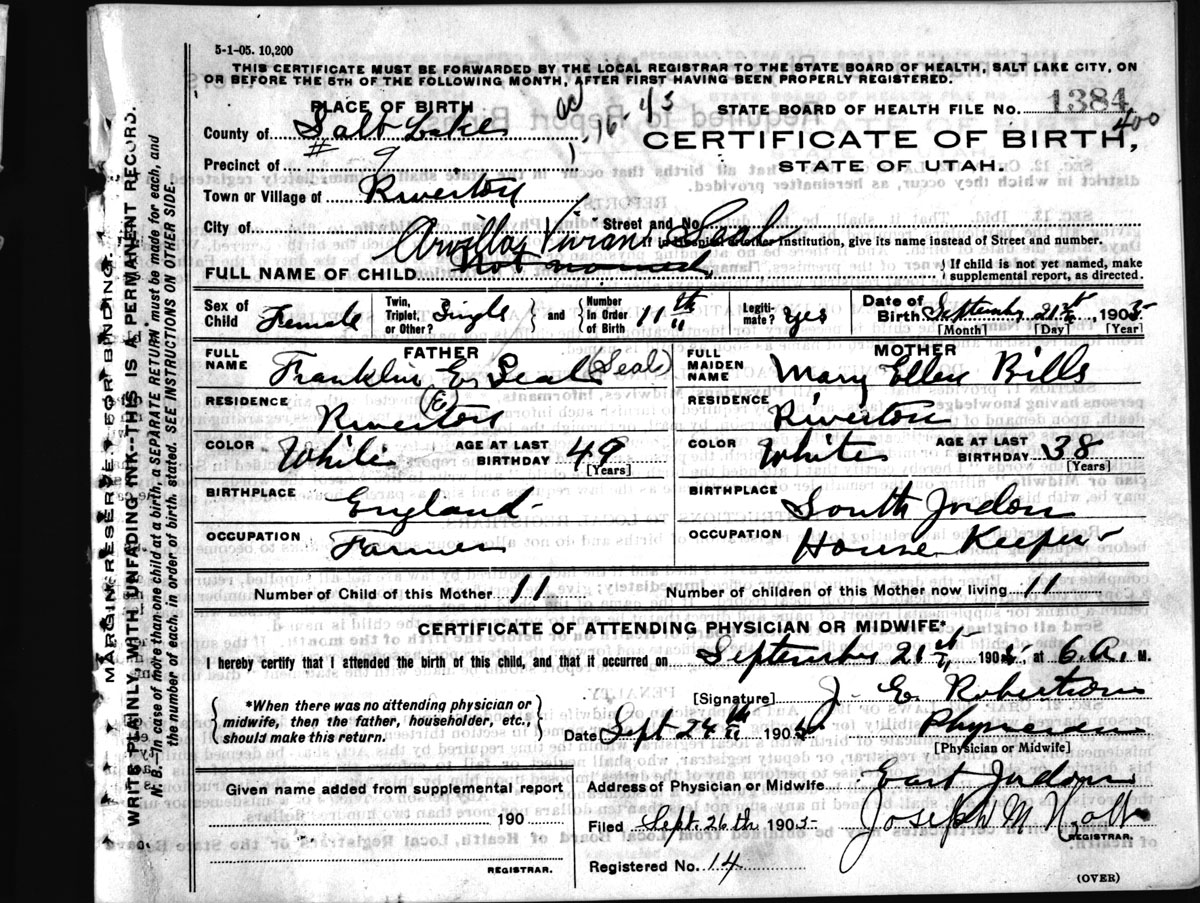 5-1-05. 10,200
THIS CERTIFICATE MUST BE FORWARDED BY THE LOCAL REGISTRAR TO THE STATE BOARD OF HEALTH, SALT LAKE CITY, ON
OR BEFORE THE 5TH OF THE FOLLOWING MONTH, AFTER FIRST HAVING BEEN PROPERLY REGISTERED.
PLACE OF BIRTH
STATE BOARD OF HEALTH FILE No. 1384
400
County of Salt Lake
CERTIFICATE OF BIRTH,
Precinct of # 9
STATE OF UTAH.
Town or Village of Riverton
City of Street and No.
Arvilla Vivian Seal
If in Hospital or other institution, give its name instead of Street and number.
FULL NAME OF CHILD Not named
{ If child is not yet named, make supplemental report, as directed.
Sex of Child Female
Twin, Triplet, or Other? Single } and { Number in Order of Birth 11th
Legitimate? yes
Date of Birth September 21st, 1905
[Month] [Day] [Year]
FATHER
FULL NAME Franklin E. Seal (Seal)
RESIDENCE Riverton
COLOR White AGE AT LAST BIRTHDAY 49 [Years]
BIRTHPLACE England
OCCUPATION Farmer
MOTHER
FULL MAIDEN NAME Mary Ellen Bills
RESIDENCE Riverton
COLOR White AGE AT LAST BIRTHDAY 38 [Years]
BIRTHPLACE South Jordon
OCCUPATION House Keeper
Number of Child of this Mother 11 Number of children of this Mother now living 11
CERTIFICATE OF ATTENDING PHYSICIAN OR MIDWIFE*
I hereby certify that I attended the birth of this child, and that it occurred on September 21st, 1905 at 6. A. M.
{ *When there was no attending physician or midwife, then the father, householder, etc., should make this return. }
[Signature] J. E. Robertson
Date Sept 24th 1905 Physician
[Physician or Midwife]
Given name added from supplemental report
190
REGISTRAR.
Address of Physician or Midwife East Jordon
Filed Sept. 26th 1905 Joseph M Holt
REGISTRAR.
Registered No. 14
(OVER)
MARGIN RESERVED FOR BINDING.
WRITE PLAINLY WITH UNFADING INK--THIS IS A PERMANENT RECORD.
N. B.--In case of more than one child at a birth, a SEPARATE RETURN must be made for each, and
the number of each, in order of birth, stated. SEE INSTRUCTIONS ON OTHER SIDE.